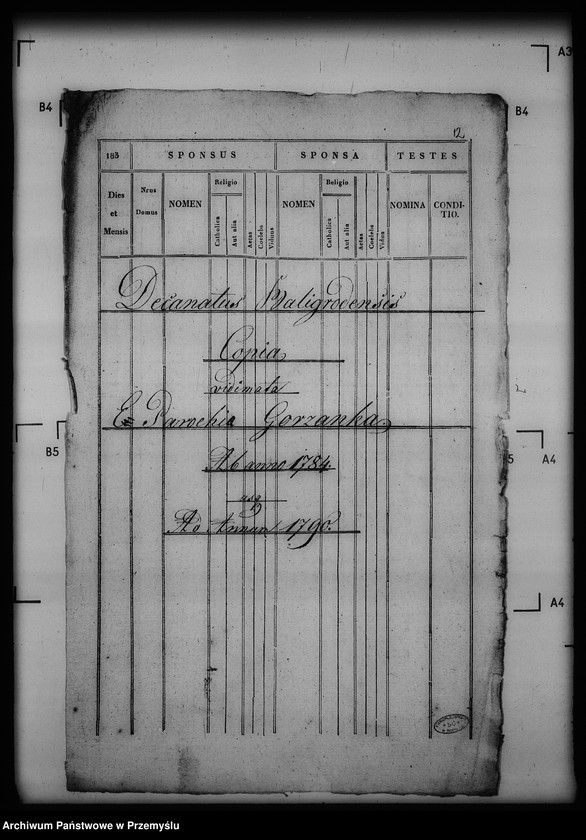 A3
B4
B4
12
183
SPONSUS
SPONSA
TESTES
Dies et Mensis
Nrus Domus
NOMEN
Religio
Catholica
Aut alia
Aetas
Coelebs
Viduus
NOMEN
Religio
Catholica
Aut alia
Aetas
Coelebs
Vidua
NOMINA
CONDI-
TIO.
Decanatus Baligrodensis
Copia
vidimata
E Parochia Gorzanka
Ab anno 1784.
usq
Ad Annum 1790.
B5
5
A4
A4
Archiwum Państwowe w Przemyślu